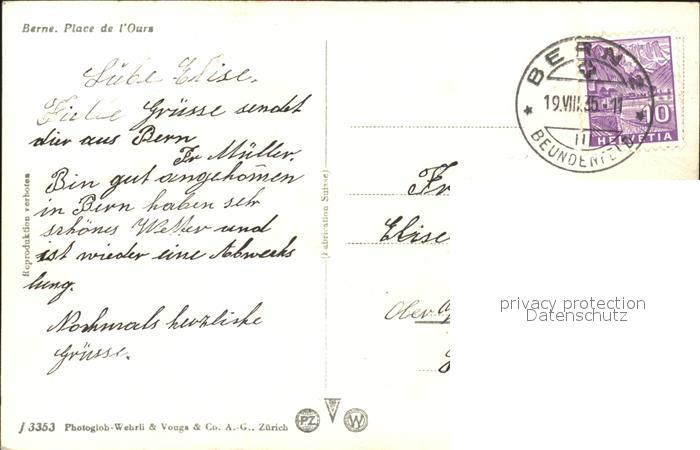 Berne. Place de l'Ours
Lübe Elise.
Fielle Grüsse sendet
dir aus Bern
Fr Müller.
Bin gut angekomen
in Bern haben sehr
schönes Wetter und
ist wieder eine Abwecks
lung.
Nochmals herzliche
Grüsse.
Reproduktion verboten
(Fabrication Suisse)
BERN 2
19.VIII.35.-11
III
BEUNDENFELD
10
HELVETIA
Fr
Elise
Ober
privacy protection
Datenschutz
J 3353 Photoglob-Wehrli & Vouga & Co. A.-G., Zürich
PZ V W